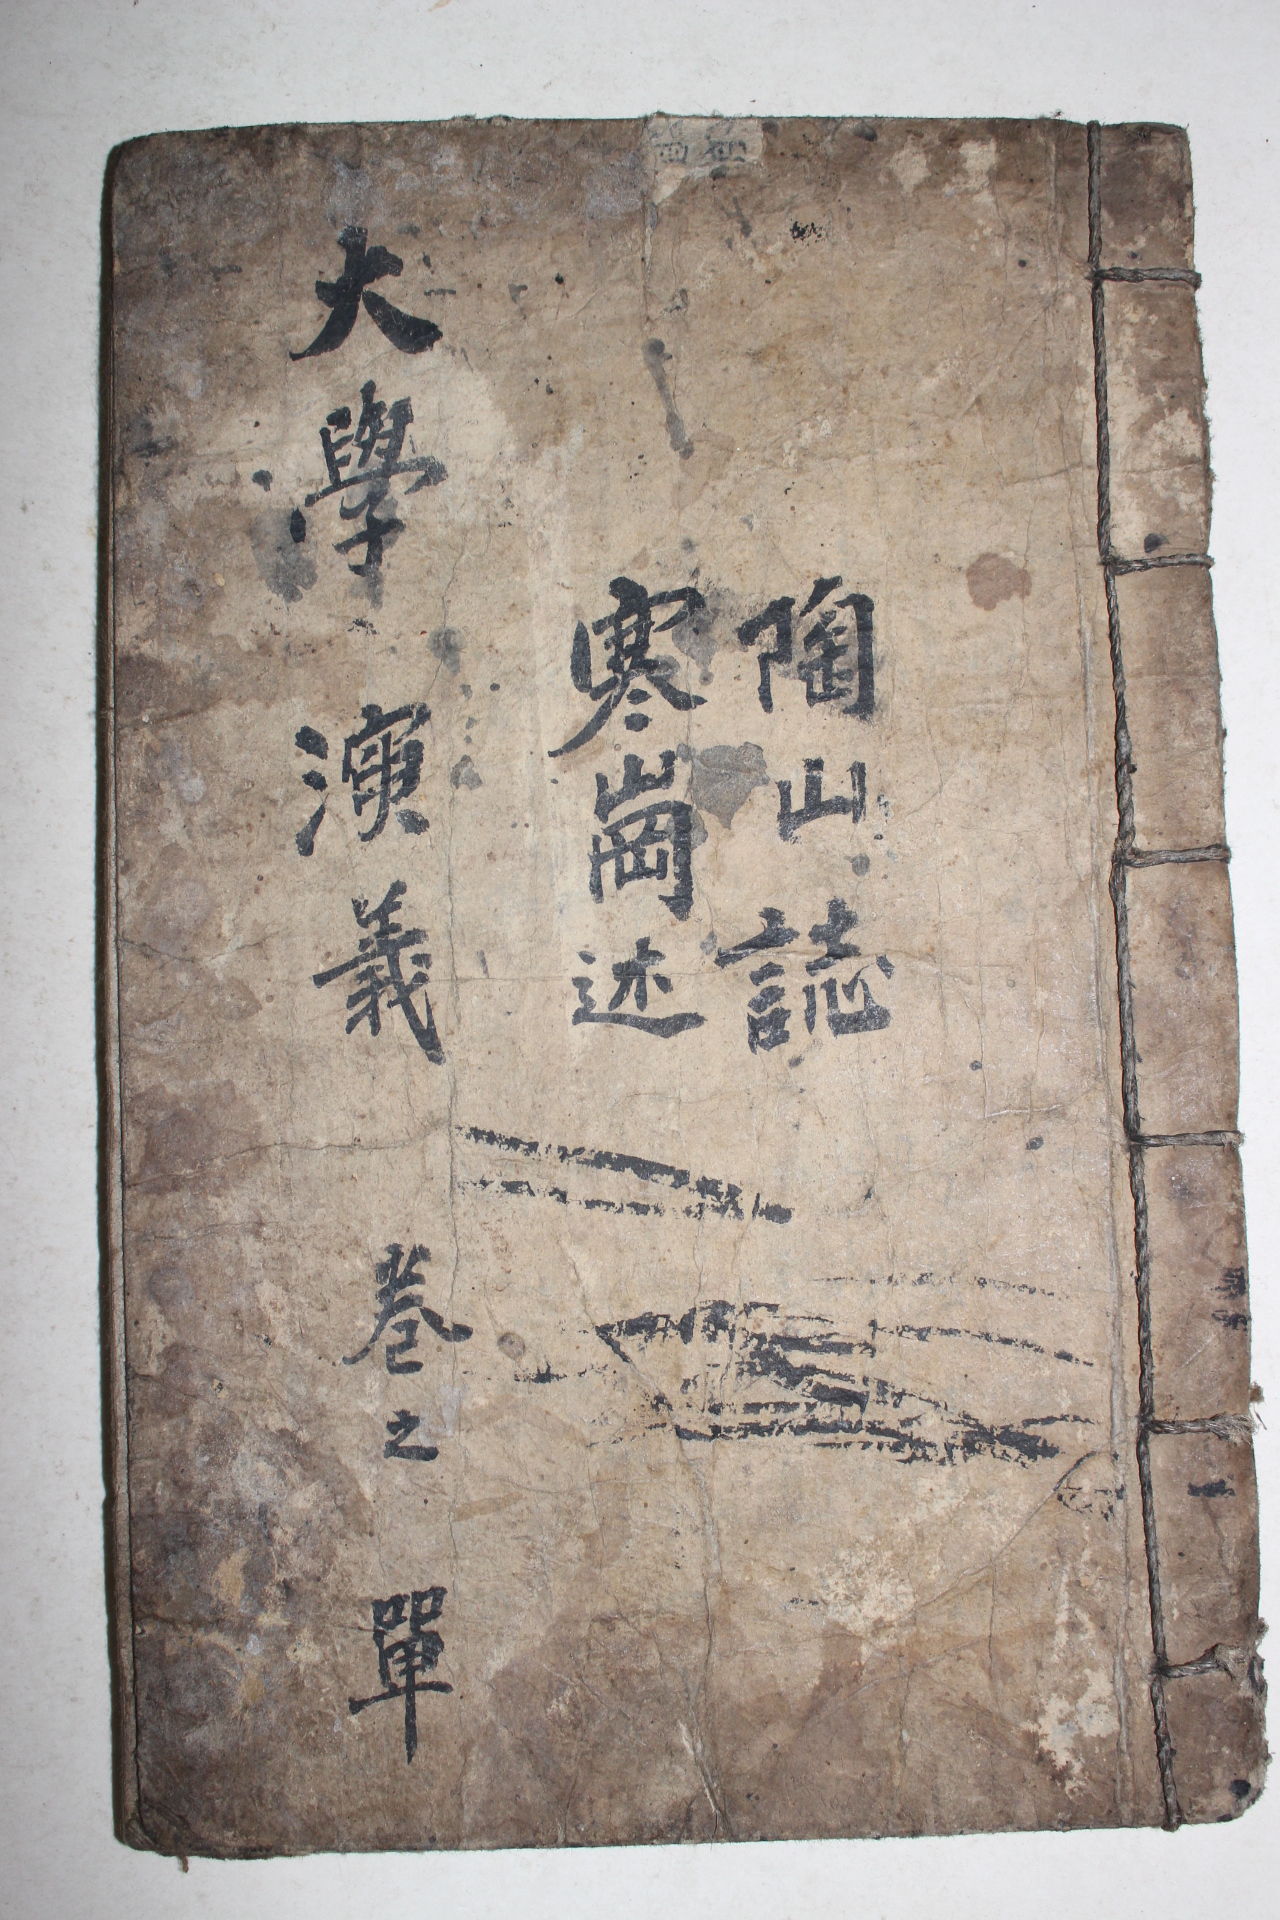 陶山誌
寒崗述
大學演義 卷之 單